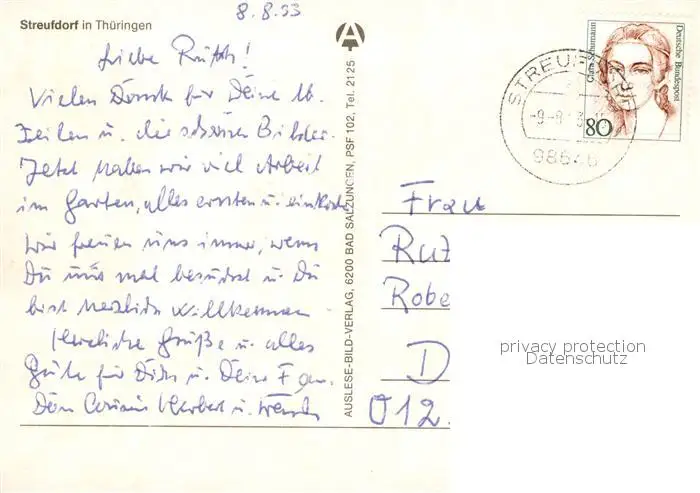 8.8.93
Streufdorf in Thüringen
Liebe Ruth!
Vielen Dank für Deine lb.
Zeilen u. die schönen Bilder.
Jetzt haben wir viel Arbeit
im Garten, alles ernten u. einkochen
Wir freuen uns immer, wenn
Du uns mal besuchst u. Du
bist herzlich willkommen
Herzliche Grüße u. alles
Gute für Dich u. Deine Fam.
Dein Cousin Herbert u.
AUSLESE-BILD-VERLAG, 6200 BAD SALZUNGEN, PSF 102, Tel. 2125
Clara Schumann
Deutsche Bundespost
80
STREUFDORF
98646
Frau
Rut
Robe
D
012.
privacy protection
Datenschutz